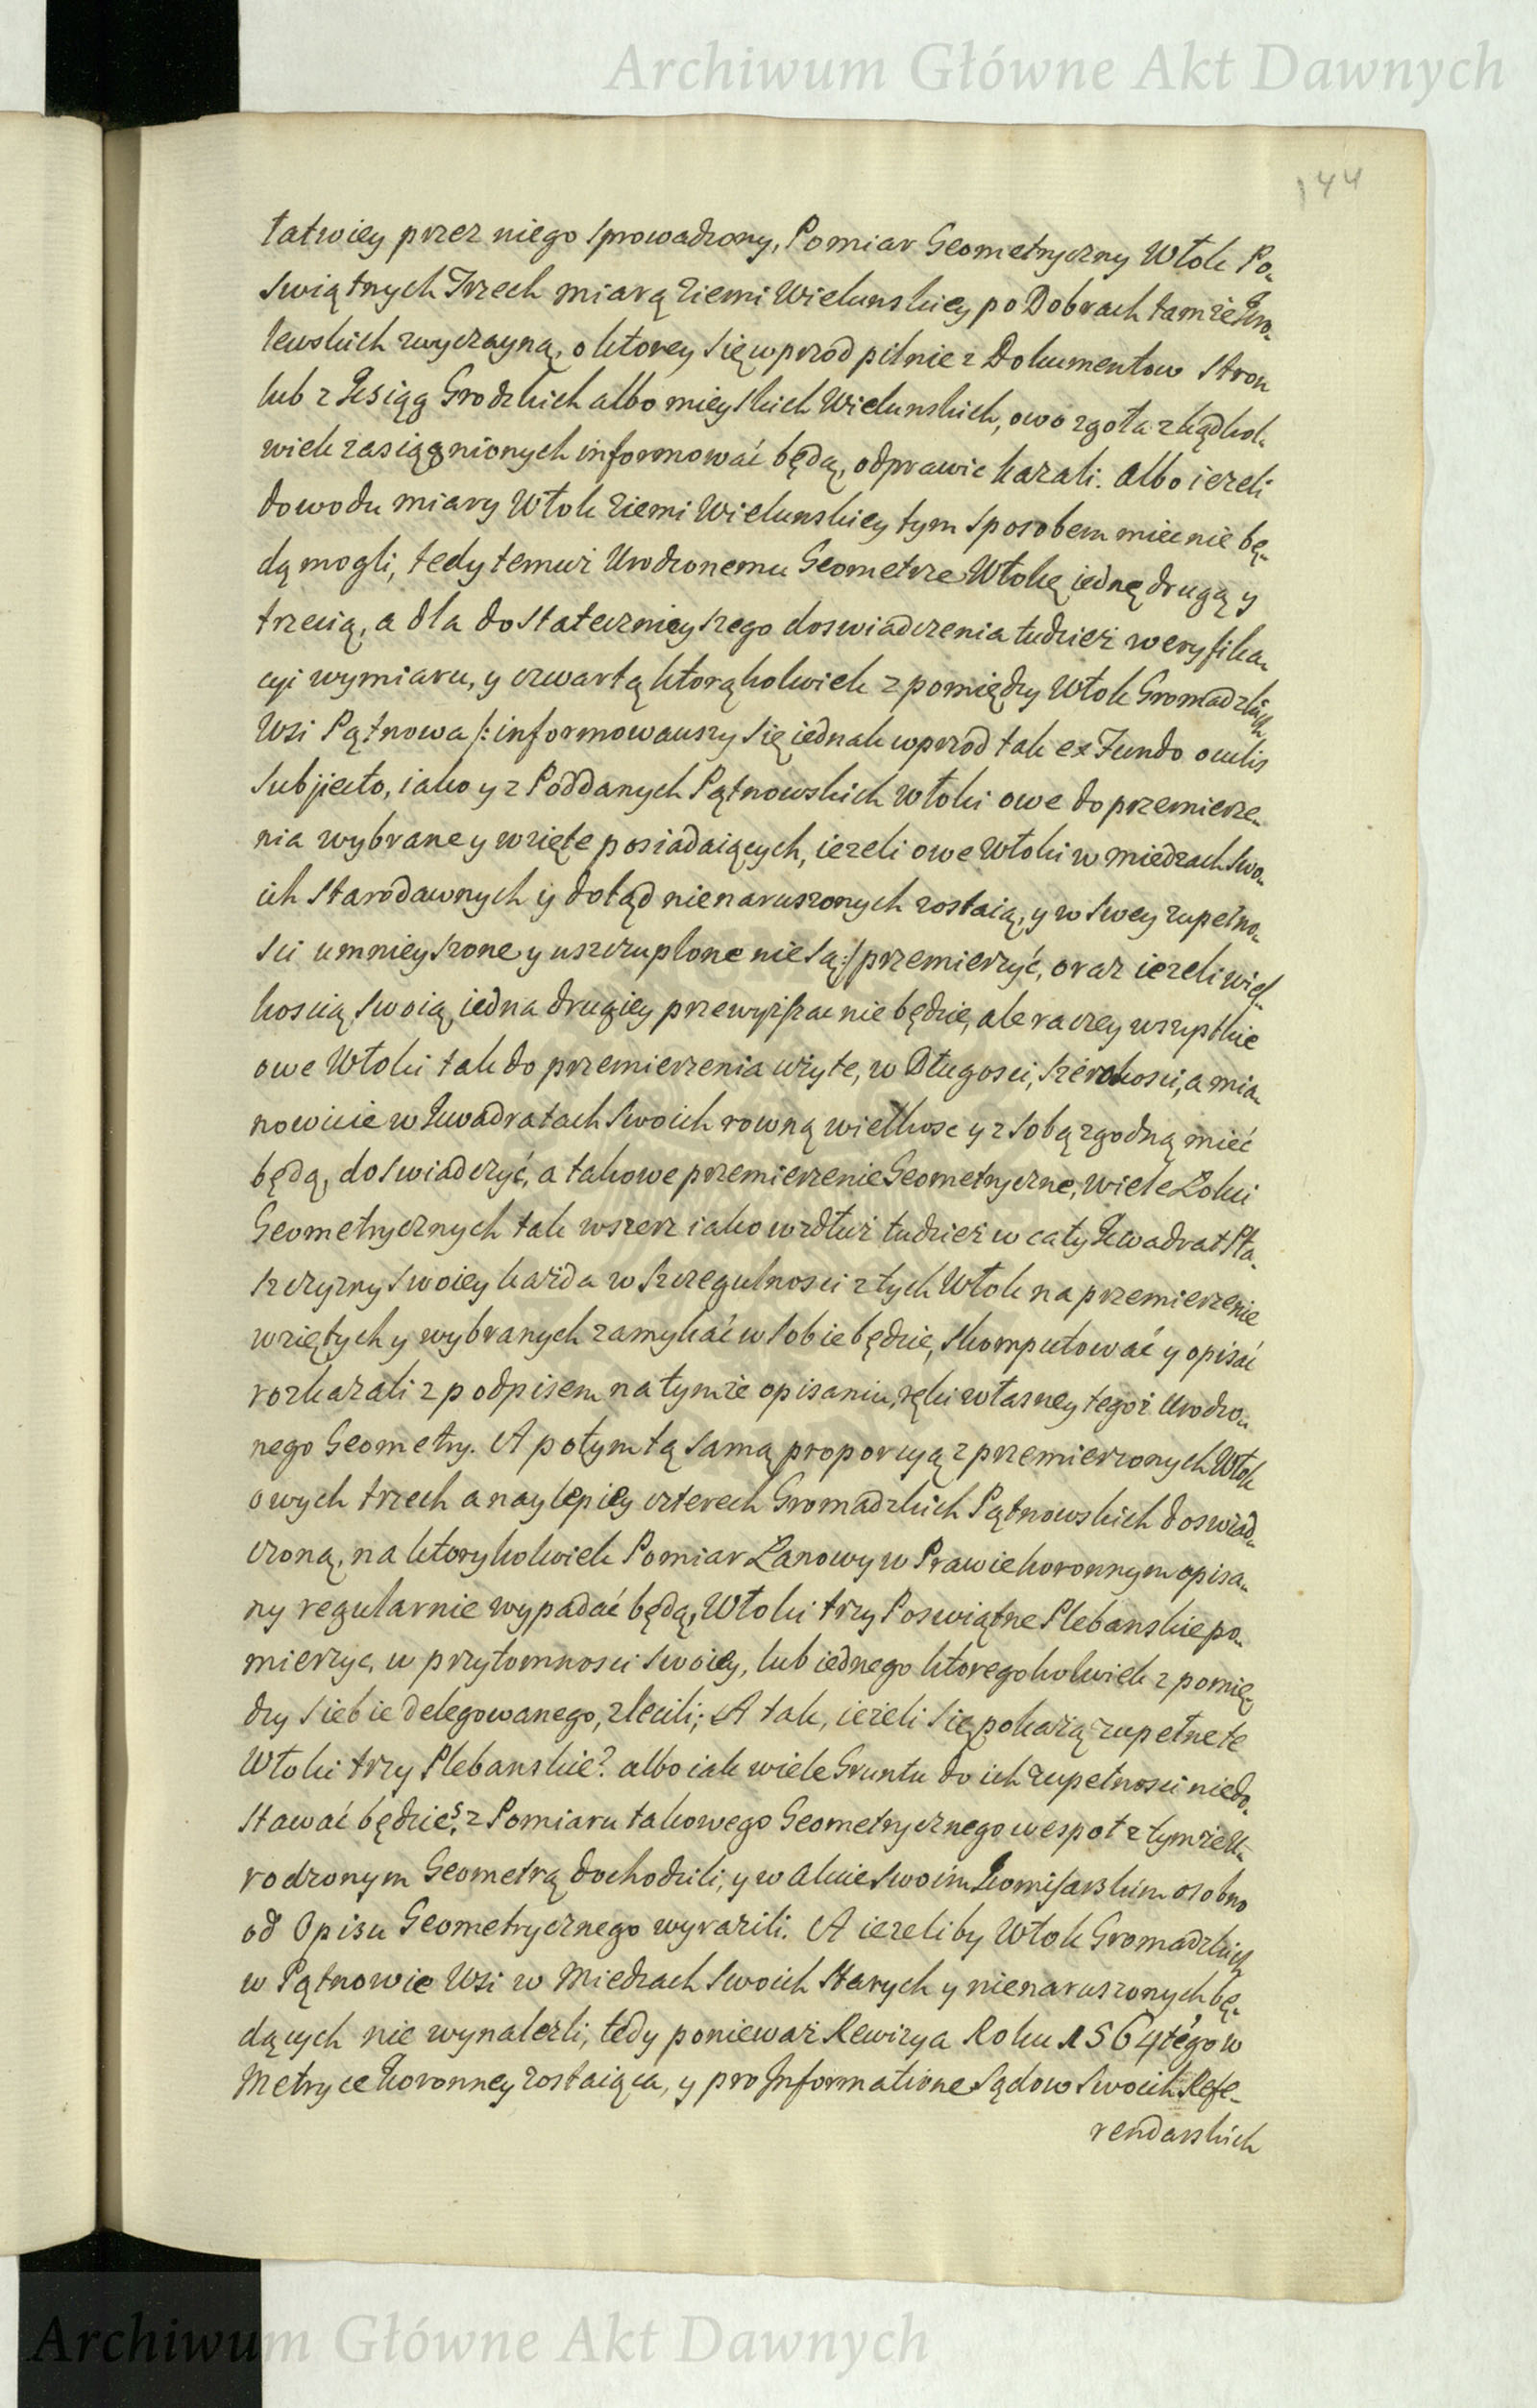 Archiwum Główne Akt Dawnych
144
łatwiey przez niego sprowadzony, Pomiar Geometryczny Włok Po-
swiątnych Trzech miarą Ziemi Wielunskiey po Dobrach tamże Kro-
lewskich zwyczayną, o ktorey się wprzod pilnie z Dokumentow stron
lub z Ksiąg Grodzkich albo mieyskich Wielunskich, owo zgoła zkądkol-
wiek zasiągnionych informować będą, odprawic kazali. Albo iezeli
dowodu miary Włok Ziemi Wielunskiey tym sposobem miec nie bę-
dą mogli, tedy temuż Urodzonemu Geometrze Włokę iednę drugą y
trzecią, a dla dostatecznieyszego doswiadczenia tudzież weryfika-
cyi wymiaru, y czwartą ktorąkolwiek z pomiędzy Włok Gromadzkich
Wsi Pątnowa /: informowawszy się iednak wprzod tak ex Fundo oculis
subjecto, iako y z Poddanych Pątnowskich włoki owe do przemierze-
nia wybrane y wzięte posiadaiących, iezeli owe Włoki w miedzach swo-
ich starodawnych y dotąd nienaruszonych zostaią, y w swey zupełno-
sci umnieyszone y uszczuplone nie są :/ przemierzyć, oraz iezeli wiel-
koscią swoią iedna drugiey przewyższac nie będzie, ale raczey wszystkie
owe Włoki tak do przemierzenia użyte, w Długosci, szerokosci, a mia-
nowicie w Kwadratach swoich rowną wielkosc y z sobą zgodną mieć
będą, doswiadczyć, a takowe przemierzenie Geometryczne, wiele Łokci
Geometrycznych tak wszerz iako wzdłuż tudzież w cały Kwadrat Pła-
szczyzny swoiey każda w szczegulnosci z tych Włok na przemierzenie
wziętych y wybranych zamykać w sobie będzie, skomputować y opisać
rozkazali z podpisem na tymże opisaniu, ręki własney tegoż Urodzo-
nego Geometry. A potym tą samą proporcyą z przemierzonych Włok
owych trzech a naylepiey czterech Gromadzkich Pątnowskich doswiad-
czoną, na ktorykolwiek Pomiar Łanowy w Prawie koronnym opisa-
ny regularnie wypadać będą, Włoki trzy Poswiątne Plebanskie po-
mierzyc, w przytomnosci swoiey, lub iednego ktoregokolwiek z pomię-
dzy siebie delegowanego, zlecili; A tak, ieżeli się pokażą zupełne te
Włoki trzy Plebanskie? albo iak wiele Gruntu do ich zupełnosci niedo-
stawać będzie? z Pomiaru takowego Geometrycznego wespoł z tymże U-
rodzonym Geometrą dochodzili, y w Akcie swoim Komisarskim osobno
od Opisu Geometrycznego wyrazili. A iezeliby Włok Gromadzkich
w Pątnowie Wsi w Miedzach swoich starych y nienaruszonych bę-
dących nie wynalezli, tedy ponieważ Rewizya Roku 1564tego w
Metryce Koronney zostaiąca, y pro Informatione Sądow swoich Refe-
rendarskich
Archiwum Główne Akt Dawnych